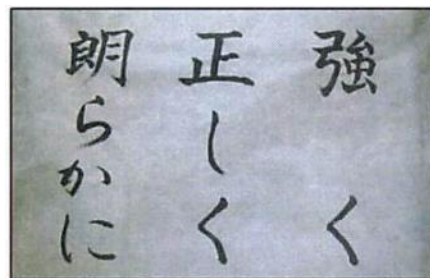 強く
正しく
朗らかに